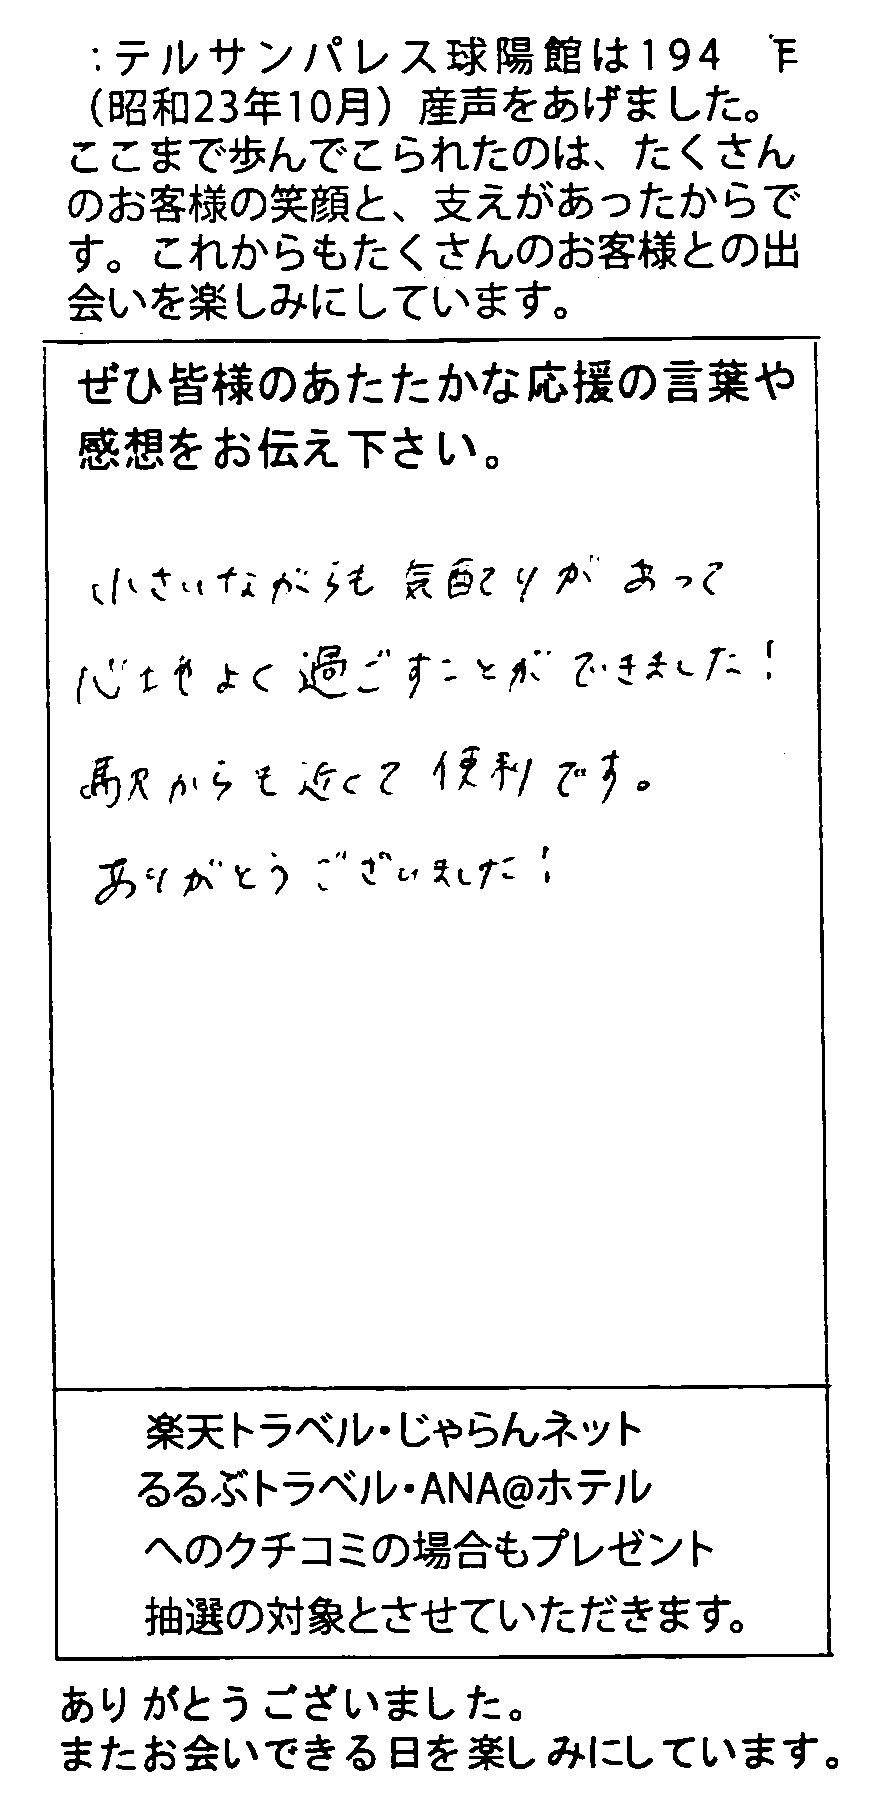 テルサンパレス球陽館は194 年
（昭和23年10月）産声をあげました。
ここまで歩んでこられたのは、たくさん
のお客様の笑顔と、支えがあったからで
す。これからもたくさんのお客様との出
会いを楽しみにしています。
ぜひ皆様のあたたかな応援の言葉や
感想をお伝え下さい。
小さいながらも気配りがあって
心地よく過ごすことができました！
駅からも近くて便利です。
ありがとうございました！
楽天トラベル・じゃらんネット
るるぶトラベル・ANA@ホテル
へのクチコミの場合もプレゼント
抽選の対象とさせていただきます。
ありがとうございました。
またお会いできる日を楽しみにしています。